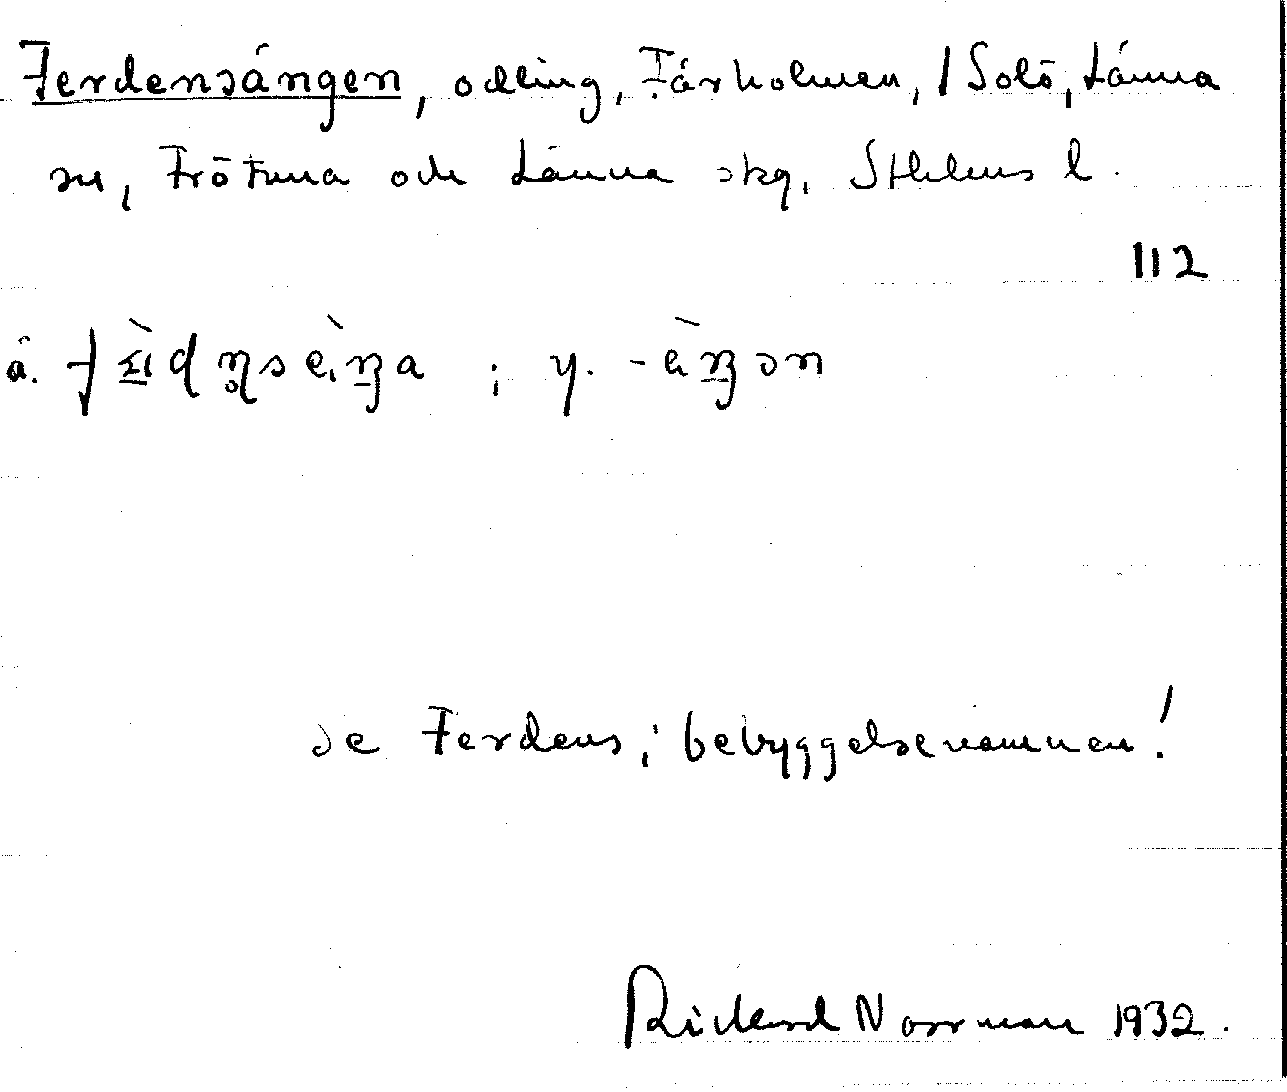 Ferdensängen, odling, Fårholmen, / Solö, Länna
sn, Frötuna och Länna skg, Sthlms l.
112
ä. ; y.
se Ferdens, bebyggelsenamnen!
Rickard Norrman 1932.